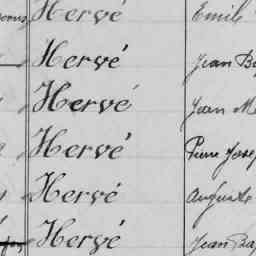 Hervé Emile
Hervé Jean
Hervé Jean
Hervé Pierre
Hervé Auguste
Hervé Jean